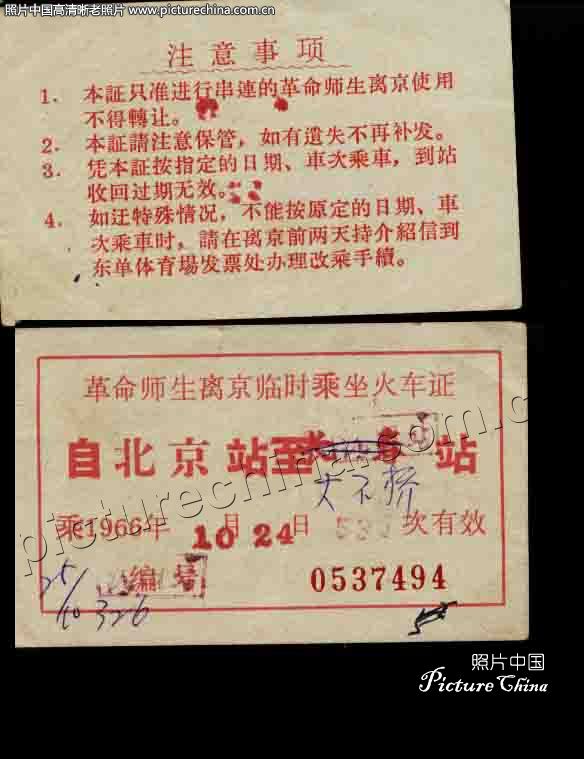 照片中国高清晰老照片 www.picturechina.com.cn
注意事项
1. 本証只准进行串連的革命师生离京使用
不得轉让。
2. 本証請注意保管，如有遺失不再补发。
3. 凭本証按指定的日期、車次乘車，到站
收回过期无效。
4. 如迂特殊情况，不能按原定的日期、車
次乘車时，請在离京前两天持介紹信到
东单体育場发票处办理改乘手續。
革命师生离京临时乘坐火车证
自北京站至 站
大石桥
乘1966年10月24日 次有效
编号 0537494
25/10 326
picturechina.com.c
照片中国
Picture China